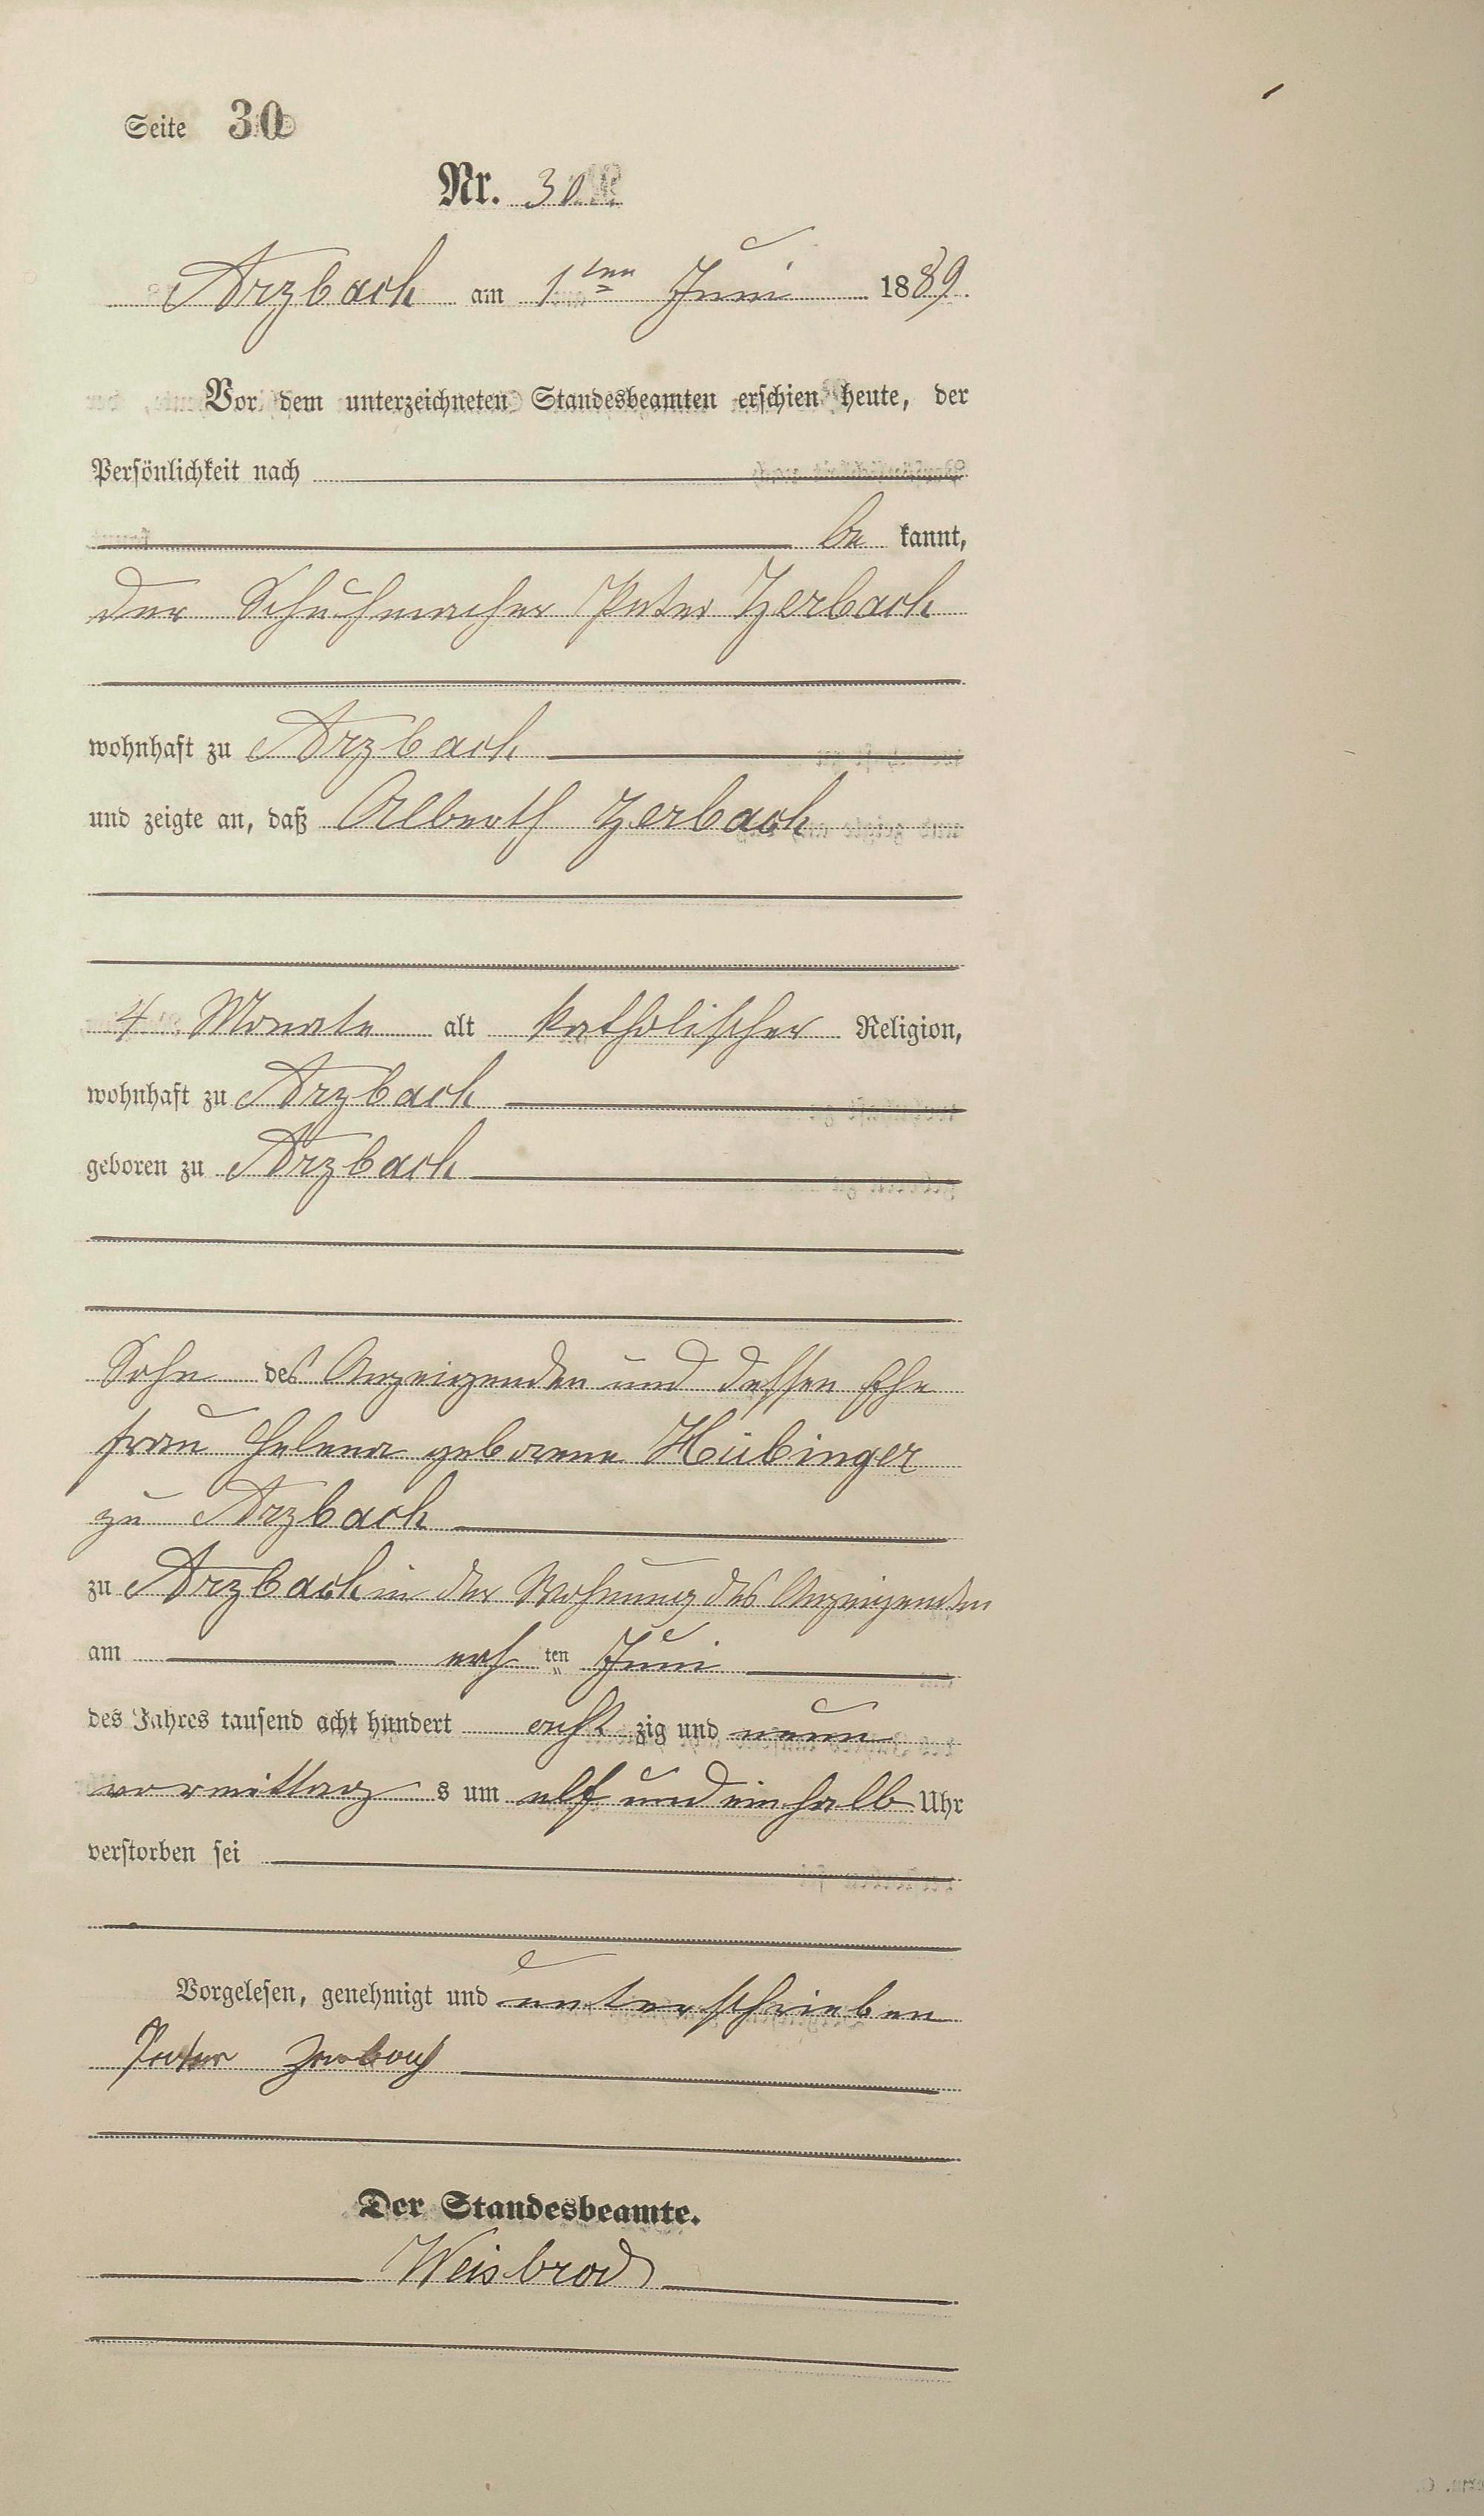 Seite 30
Nr. 30
Arzbach am 1ten Juni 1889.
Vor dem unterzeichneten Standesbeamten erschien heute, der
Persönlichkeit nach
be kannt,
der Schuhmacher Peter Zerbach
wohnhaft zu Arzbach
und zeigte an, daß Alberth Zerbach
4 Monate alt katholischer Religion,
wohnhaft zu Arzbach
geboren zu Arzbach
Sohn des Anzeigenden und dessen Ehe
frau Helena geborene Hübinger
zu Arzbach
zu Arzbach in der Wohnung des Anzeigenden
am ten Juni
des Jahres tausend acht hundert acht zig und neun
vormittag s um elf und ein halb Uhr
verstorben sei
Vorgelesen, genehmigt und unterschrieben
Peter Zerbach
Der Standesbeamte.
Weisbrod